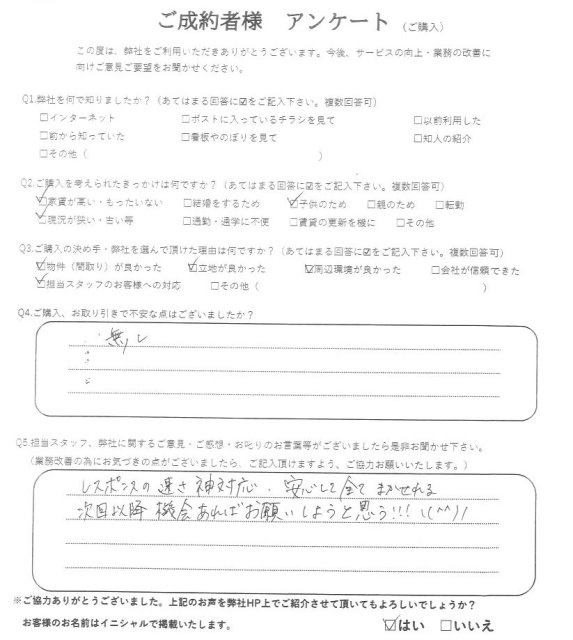 ご成約者様　アンケート（ご購入）
この度は、弊社をご利用いただきありがとうございます。今後、サービスの向上・業務の改善に
向けご意見ご要望をお聞かせください。
Q1.弊社を何で知りましたか？（あてはまる回答に☑をご記入下さい。複数回答可）
□インターネット　□ポストに入っているチラシを見て　□以前利用した
□前から知っていた　□看板やのぼりを見て　□知人の紹介
□その他（　）
Q2.ご購入を考えられたきっかけは何ですか？（あてはまる回答に☑をご記入下さい。複数回答可）
☑家賃が高い・もったいない　□結婚をするため　☑子供のため　□親のため　□転勤
☑現況が狭い・古い等　□通勤・通学に不便　□賃貸の更新を機に　□その他
Q3.ご購入の決め手・弊社を選んで頂けた理由は何ですか？（あてはまる回答に☑をご記入下さい。複数回答可）
☑物件（間取り）が良かった　☑立地が良かった　☑周辺環境が良かった　□会社が信頼できた
☑担当スタッフのお客様への対応　□その他（　）
Q4.ご購入、お取り引きで不安な点はございましたか？
無し
Q5.担当スタッフ、弊社に関するご意見・ご感想・お叱りのお言葉等がございましたら是非お聞かせ下さい。
（業務改善の為にお気づきの点がございましたら、ご記入頂けますよう、ご協力お願いいたします。）
レスポンスの速さ神対応、安心して全てまかせれる
次回以降機会あればお願いしようと思う!!! \(^^)/
※ご協力ありがとうございました。上記のお声を弊社HP上でご紹介させて頂いてもよろしいでしょうか？
お客様のお名前はイニシャルで掲載いたします。　☑はい　□いいえ